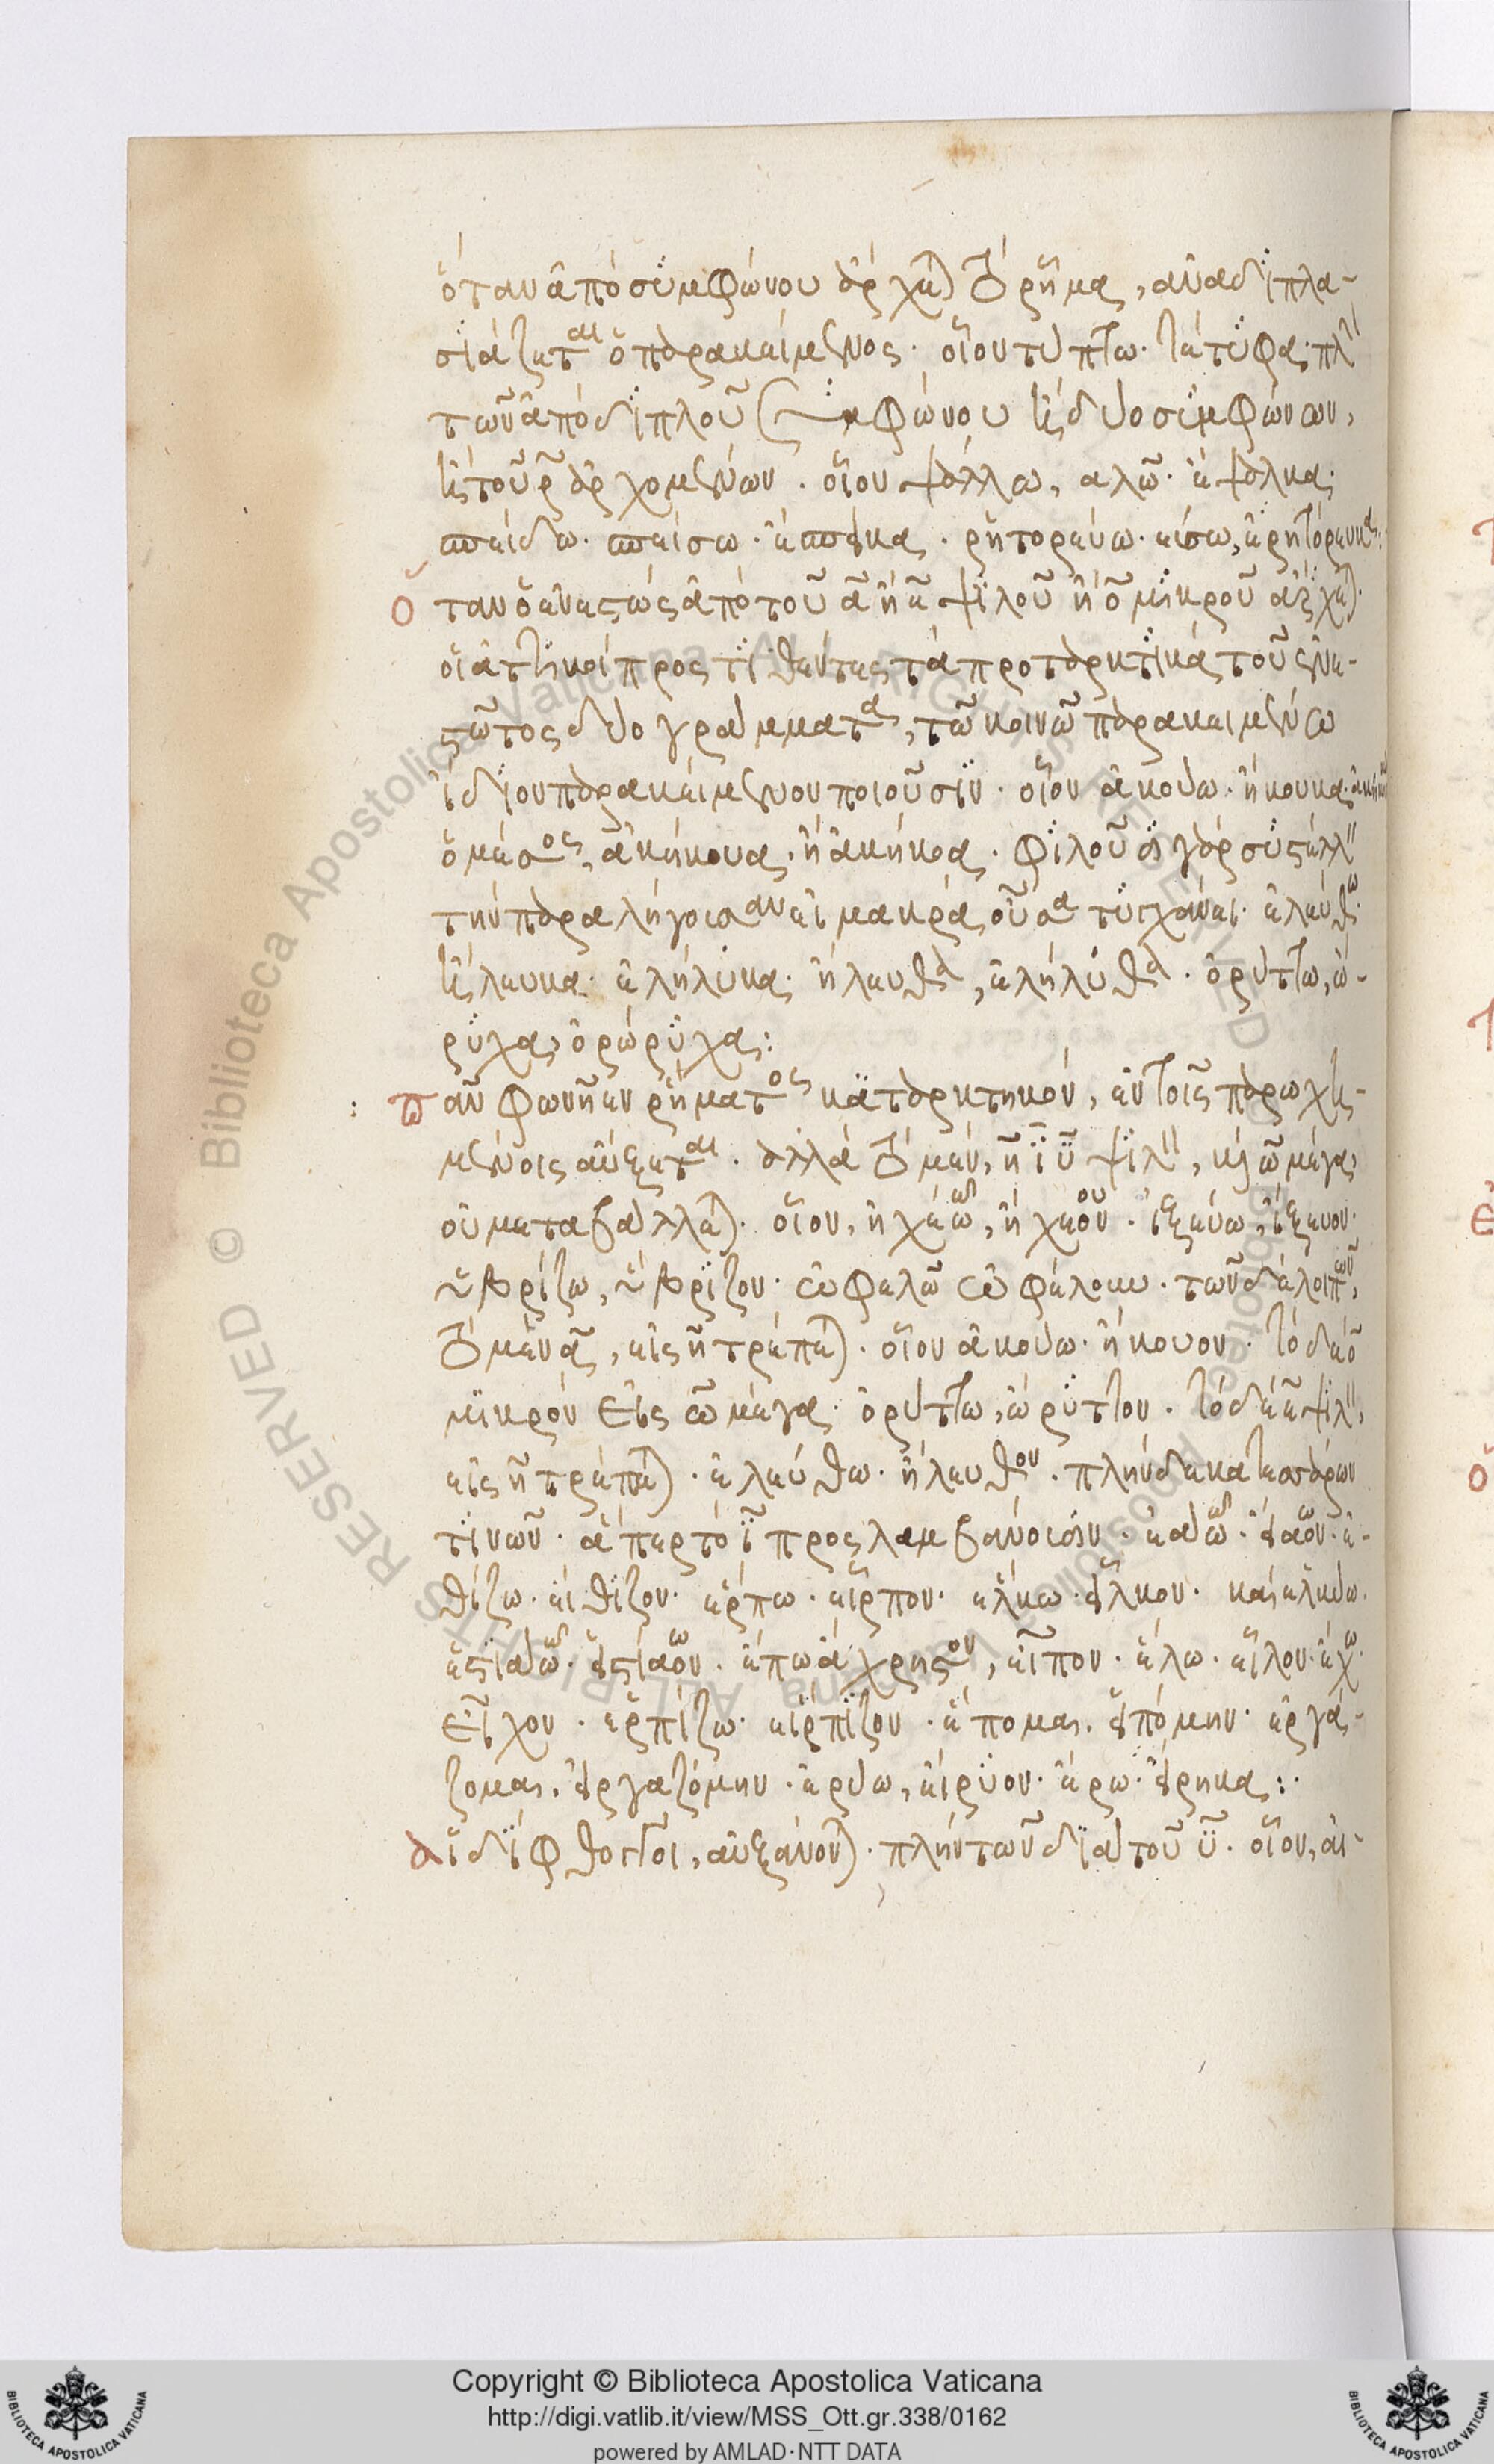 ὅταν ἀπὸ συμφώνου ἄρχηται τὸ ῥῆμα, ἀναδιπλα-
σιάζεται ὁ παρακείμενος. οἷον τύπτω. τέτυφα. πλὴ
τῶν ἀπὸ διπλοῦ συμφώνου ἢ ἐκ δύο συμφώνων,
ἢ ἐκ τοῦ ρ ἀρχομένων. οἷον ψάλλω, αλῶ. ἔψαλκα.
σπείδω. σπείσω. ἔσπεικα. ῥητορεύω. εύσω, ἐρητόρευκα:
ὅταν ὁ ἐνεστὼς ἀπὸ τοῦ α ἢ ε ψιλοῦ ἢ ο μικροῦ ἄρχηται.
οἱ ἀττικοὶ προστιθέντες τὰ προταρκτικὰ τοῦ ἐνε-
στῶτος δύο γράμματα, τῷ κοινῷ παρακειμένῳ
ἴδιον παρακείμενον ποιοῦσιν. οἷον ἀκούω. ἤκουκα. ἀκήκουκα
ὁ μέσος, ἀκήκουα. ἢ ἀκήκοα. φιλοῦσι γὰρ συστέλλειν
τὴν παραλήγουσαν εἰ μακρὰ οὖσα τυγχάνει. ἐλεύθω.
ἤλευκα. ἐλήλυκα. ἤλευθα, ἐλήλυθα. ὀρύττω, ὤ-
ρυχα, ὀρώρυχα:
πᾶν φωνῆεν ῥήματος κατάρκτηκον, ἐν τοῖς παρωχη-
μένοις αὔξεται. ἀλλὰ τὸ μὲν, η ι υ ψιλὸν, καὶ ω μέγα,
οὐ μεταβάλλεται. οἷον, ἠχέω, ἤχεον. ἰξεύω, ἴξευον.
ὑβρίζω, ὕβριζον. ὠφελῶ ὠφέλουν. τῶν δὲ λοιπῶν,
τὸ μὲν α, εἰς η τρέπεται. οἷον ἀκούω. ἤκουον. τὸ δὲ ο
μικρὸν εἰς ω μέγα. ὀρύττω, ὤρυττον. τὸ δὲ ε ψιλὸν,
εἰς η τρέπεται. ἐλεύθω. ἤλευθον. πλὴν δεκατεσσάρων
τινῶν. ἅπερ τὸ ι προσλαμβάνουσιν. ἐάω. εἴαον. ἐ-
θίζω. εἴθιζον. ἕρπω. εἷρπον. ἕλκω. εἷλκον. καὶ ἑλκύω.
ἑστιάω. εἱστίαον. ἔπω ἄχρηστον, εἶπον. ἕλω. εἷλον. ἔχω.
εἶχον. ἑρπίζω. εἵρπιζον. ἕπομαι. εἱπόμην. ἐργά-
ζομαι. εἰργαζόμην. ἐρύω, εἴρυον. ἔρω. εἴρηκα:.
αἱ δίφθογγοι, αὐξάνονται. πλὴν τῶν διὰ τοῦ υ. οἷον, αι-
Copyright © Biblioteca Apostolica Vaticana
http://digi.vatlib.it/view/MSS_Ott.gr.338/0162
powered by AMLAD-NTT DATA